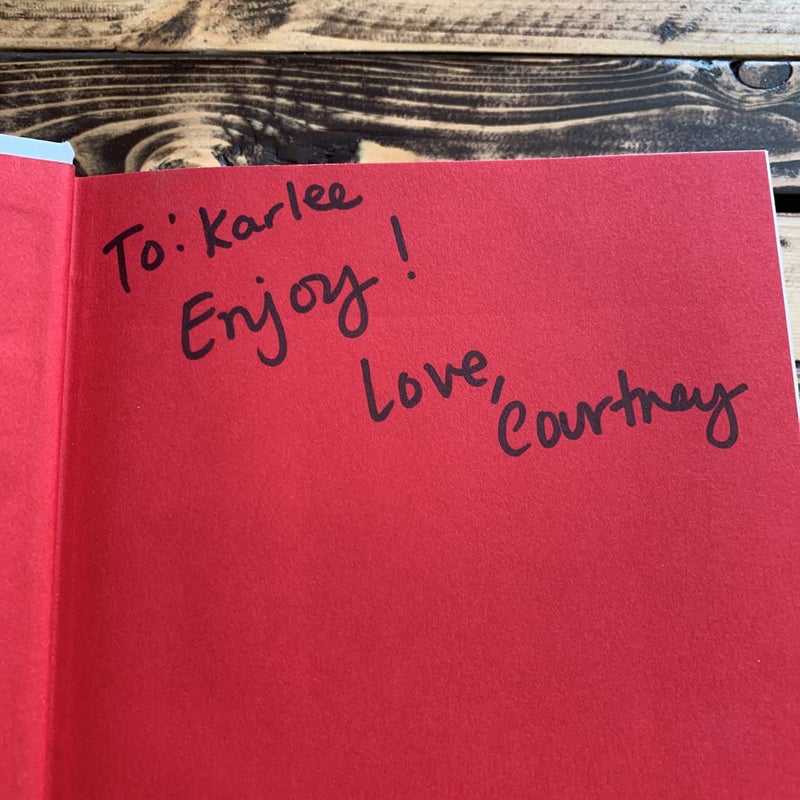 To: Karlee
Enjoy!
Love,
Courtney